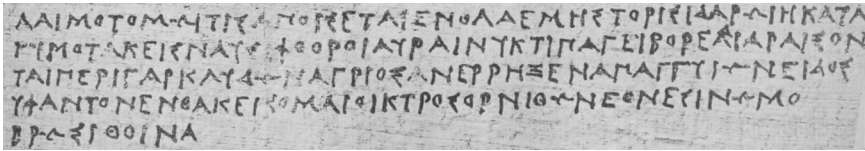 ΛΑΙΜΟΤΟΜΩΙΤΙΣΑΠΟΙΣΕΤΑΙΕΝΘΑΔΕΜΗΣΤΟΡΙΣΙΔΑΡΩΙΗΚΑΤΑ
ΚΥΜΟΤΑΚΕΙΣΝΑΥΣΙΦΘΟΡΟΙΑΥΡΑΙΝΥΚΤΙΠΑΓΕΙΒΟΡΕΑΙΔΑΡΑΙΣΟΝ
ΤΑΙΠΕΡΙΓΑΡΚΛΥΔΩΝΑΓΡΙΟΣΑΝΕΡΡΗΞΕΝΑΠΑΓΓΥΙΩΝΕΙΔΟΣ
ΥΦΑΝΤΟΝΕΝΘΑΚΕΙΣΟΜΑΙΟΙΚΤΡΟΣΟΡΝΙΘΩΝΕΘΝΕΣΙΝΩΜΟ
ΒΡΩΣΙΘΟΙΝΑ